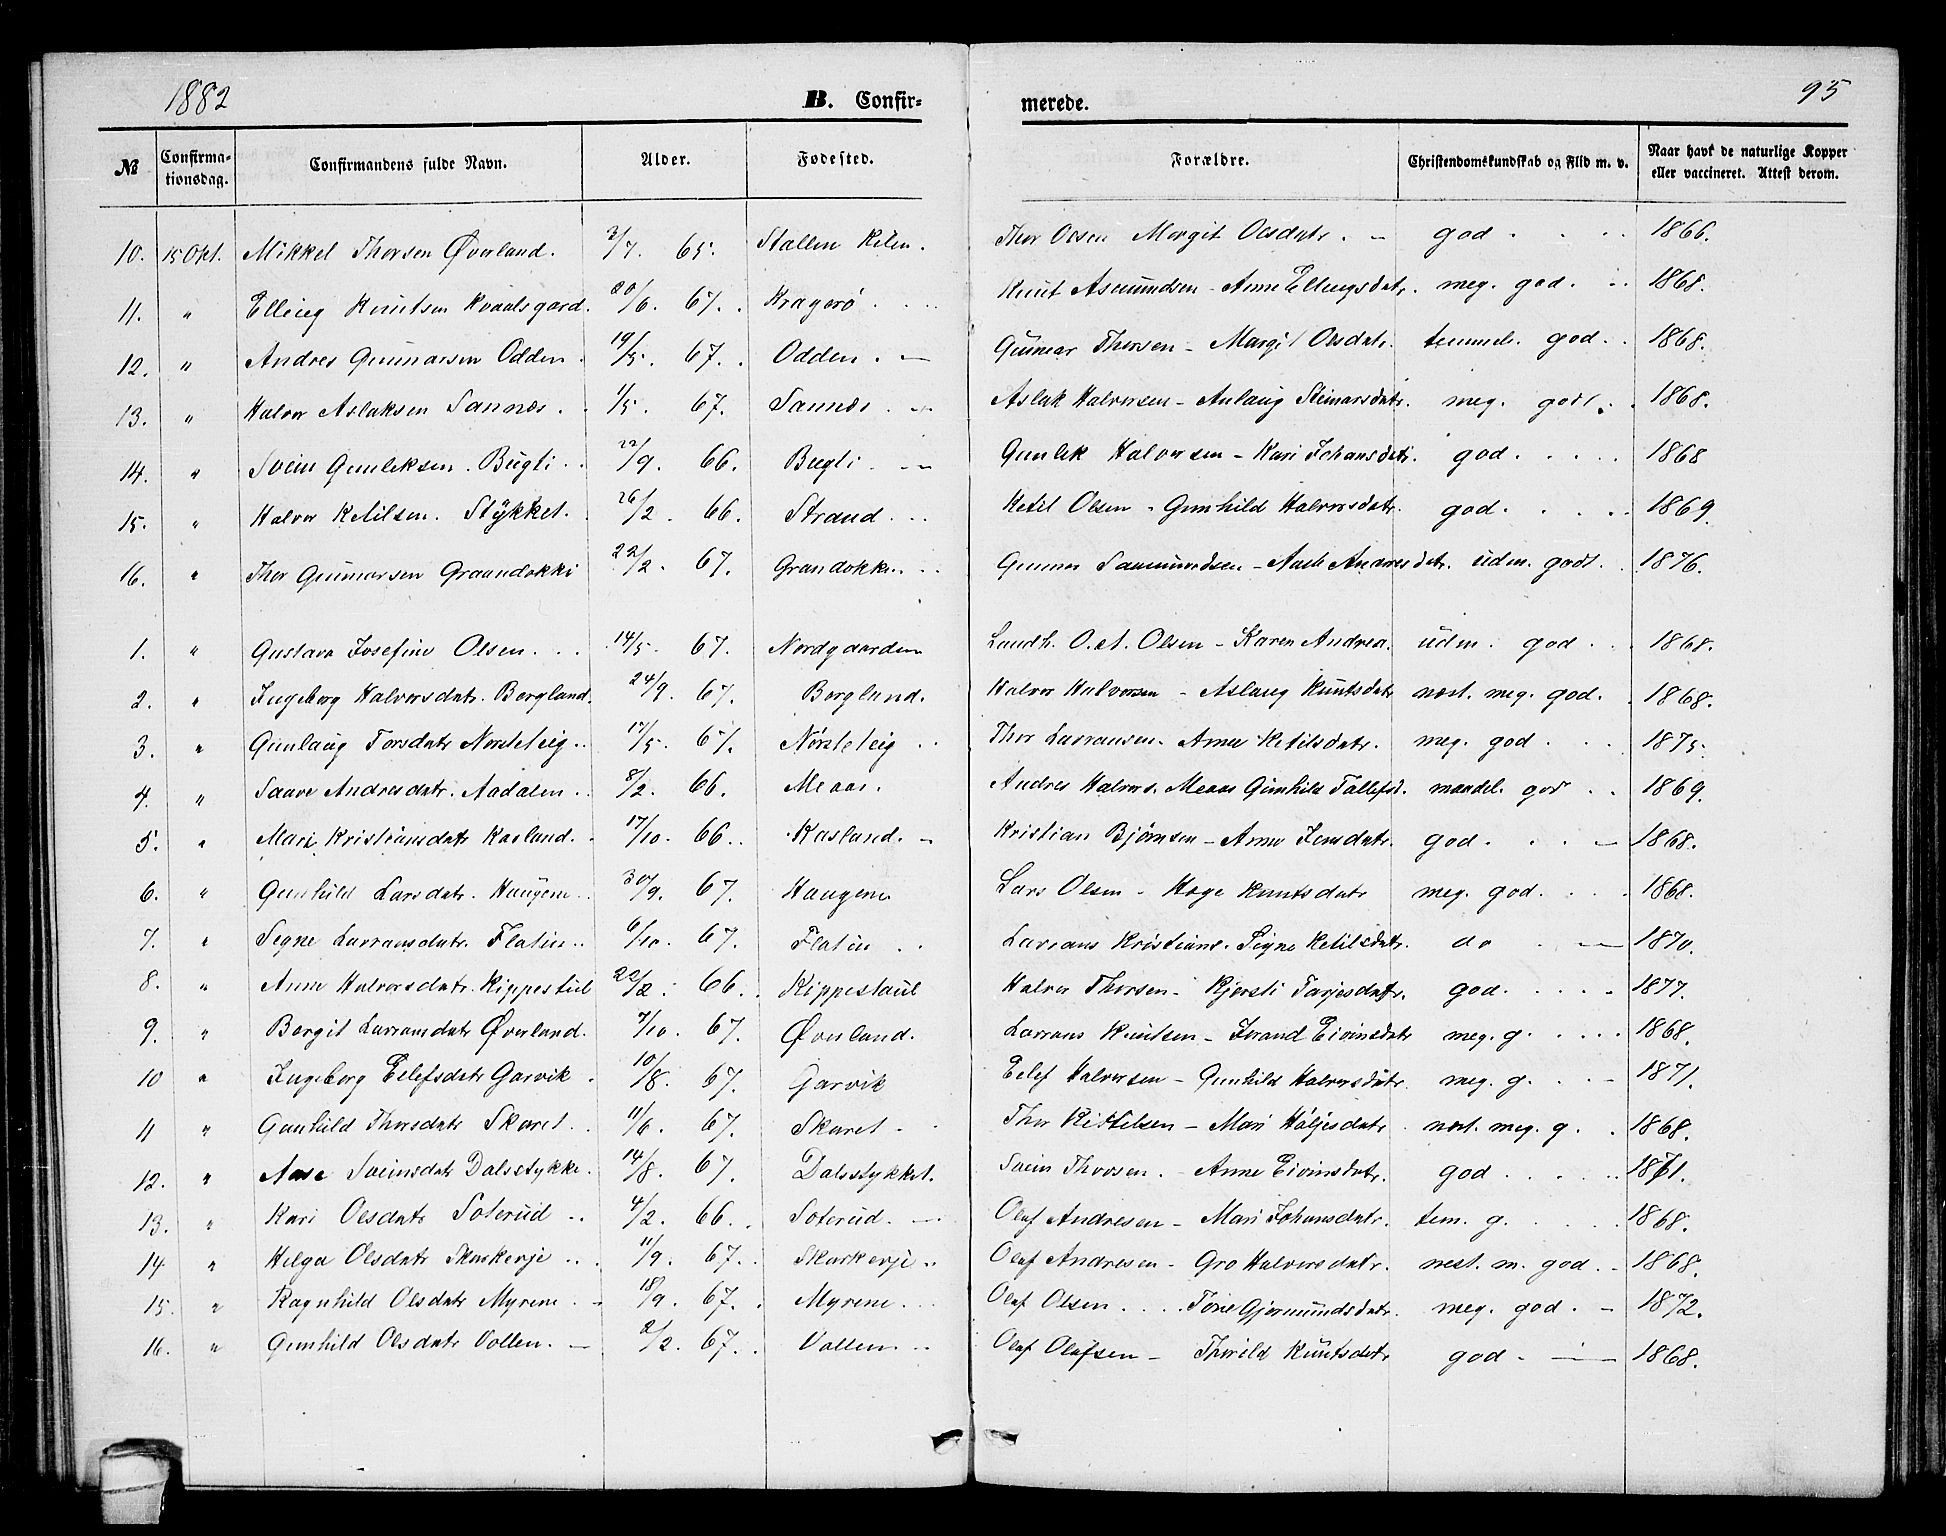 1882 B. Confir- merede. 95
№ Confirma-tionsdag. Confirmandens fulde Navn. Alder. Fødested. Forældre. Christendomskundskab og Flid m. v. Naar havt de naturlige Kopper eller vaccineret. Attest derom.
10. 15 Okt. Mikkel Thorsen Øverland. 3/7. 65. Stallen Kilen. Thor Olsen Margit Olsdatr. god 1866.
11. " Elling Knutsen Kvaalsgard. 20/6. 67. Kragerø Knut Asmundsen - Anne Ellingsdatr. meg. god. 1868.
12. " Andres Gunnarsen Odden. 19/5. 67. Odden. Gunnar Thorsen - Margit Olsdatr. temmel. god. 1868.
13. " Halvor Aslaksen Sannes. 1/5. 67. Sannes. Aslak Halvorsen - Anlaug Steinarsdatr. meg. godt. 1868.
14. " Svein Gunleksen. Bugti. 22/9. 66. Bugti. Gunlek Halvorsen - Kari Johansdatr. god. 1868
15. " Halvor Ketilsen. Stykket. 26/2. 66. Strand. Ketil Olsen - Gunhild Halvorsdatr. god. 1869.
16. " Thor Gunnarsen Graandokki 22/2. 67. Grandokki. Gunnar Saamundsen - Aase Andresdatr. udm. godt. 1876.
1. " Gustava Josefine Olsen. 14/5. 67. Nordgaarden Landh. O. A. Olsen - Karen Andrea. udm. god 1868.
2. " Ingeborg Halvorsdatr. Bergland. 24/9. 67. Bergland. Halvor Halvorsen - Aslaug Knutsdatr. næst. meg. god. 1868.
3. " Gunlaug Torsdatr Nørsteteig. 17/5. 67. Nørsteteig Thor Lavransen. Anne Ketilsdatr. meg. god 1875.
4. " Saave Andresdatr. Aadalen. 8/2. 66. Meaas. Andres Halvors. Meaas Gunhild Tallefsd. maadel. god 1869.
5. " Mari Kristiansdatr Kasland. 17/10. 66. Kasland. Kristian Bjørnsen - Anne Jensdatr. god. 1868.
6. " Gunhild Larsdatr. Haugene. 30/9. 67. Haugene Lars Olsen - Hæge Knutsdatr meg. god. 1868.
7. " Signe Lavransdatr. Flatin. 6/10. 67. Flatin Lavrans Kristians. Signe Ketilsdatr. do 1870.
8. " Anne Halvorsdatr. Kippestul 22/2. 66. Kippestaul Halvor Thorsen - Kjersti Tarjesdatr. god. 1877.
9. " Borgit Lavransdatr Øverland. 7/10. 67. Øverland. Lavrans Knutsen - Jorand Eivinsdatr meg. g. 1868.
10 " Ingeborg Eilefsdatr Garvik. 10/8. 67. Garvik Eilef Halvorsen - Gunhild Halvorsdatr. meg. g. 1871.
11 " Gunhild Thorsdatr Skaret. 11/6. 67. Skaret. Thor Kittilsen - Mari Høljesdatr næst. meg. g. 1868.
12. " Aase Sveinsdatr Dalsstykke. 14/8. 67. Dalsstykket. Svein Thorsen. - Anne Eivinsdatr. god 1871.
13. " Kari Olsdatr Soterud 4/2. 66. Soterud. Olaf Andresen - Mari Johansdatr. tem. g. 1868.
14. " Helga Olsdatr Skarkerje 11/9. 67. Skarkerje Olaf Andresen - Gro Halvorsdatr. næst. m. god. 1868.
15. " Ragnhild Olsdatr Myrene. 18/9. 67. Myrene. Olaf Olsen Tone Gjermundsdatr. meg. god. 1872.
16. " Gunhild Olsdatr Vollen. 2/2. 67. Vollen Olaf Olafsen - Thorild Knutsdatr god. 1868.